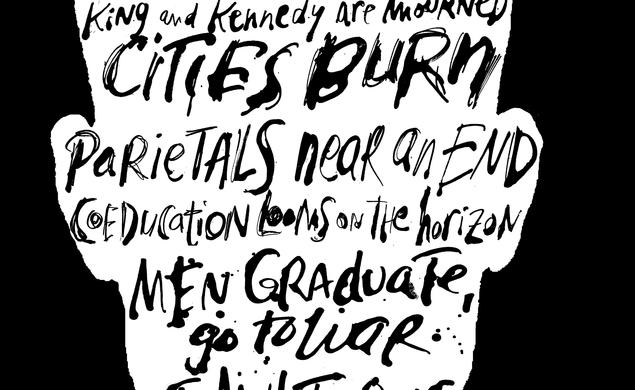 King and Kennedy are mourned
Cities Burn
Parietals near an End
Coeducation Looms on the horizon
Men Graduate,
go to war.